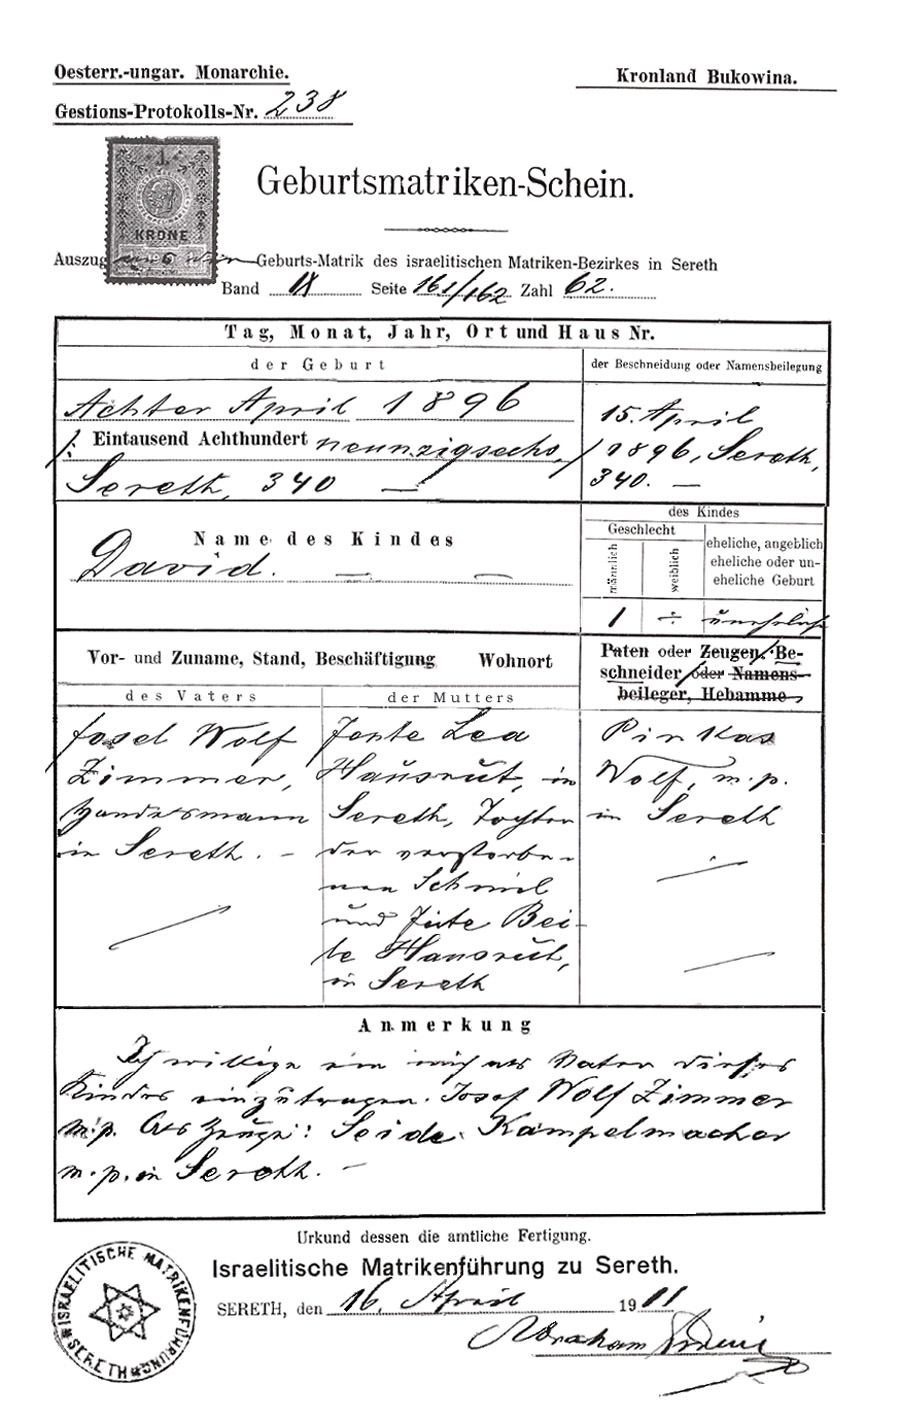 Oesterr.-ungar. Monarchie.
Kronland Bukowina.
Gestions-Protokolls-Nr. 238
1
KRONE
Geburtsmatriken-Schein.
Auszug Geburts-Matrik des israelitischen Matriken-Bezirkes in Sereth
Band IX Seite 161/162 Zahl 62.
Tag, Monat, Jahr, Ort und Haus Nr.
der Geburt
der Beschneidung oder Namensbeilegung
Achter April 1896
Eintausend Achthundert neunzigsechs,
Sereth, 340 —
15. April
1896, Sereth,
340. —
Name des Kindes
David. — —
des Kindes
Geschlecht
männlich
weiblich
eheliche, angeblich
eheliche oder un-
eheliche Geburt
1 ÷ unehelich
Vor- und Zuname, Stand, Beschäftigung Wohnort
des Vaters
der Mutters
Paten oder Zeugen, Be-
schneider oder Namens-
beileger, Hebamme
Josef Wolf
Zimmer,
Handelsmann
in Sereth. –
Jente Lea
Hausrut, in
Sereth, Tochter
der verstorbe-
nen Schmil
und Jüte Bei-
le Hausrut,
in Sereth
Pinkas
Wolf, m.p.
in Sereth
Anmerkung
Ich willige ein mich als Vater dieses
Kindes einzutragen. Josef Wolf Zimmer
m.p. Als Zeuge: Seide Kampelmacher
m.p. in Sereth. –
Urkund dessen die amtliche Fertigung.
Israelitische Matrikenführung zu Sereth.
SERETH, den 16. April 1911
Abraham
ISRAELITISCHE MATRIKENFÜHRUNG
SERETH